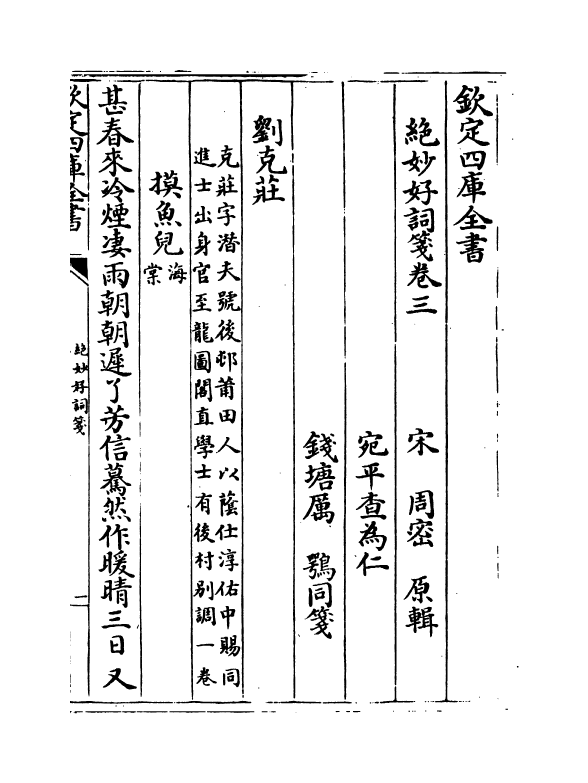 欽定四庫全書
絕妙好詞箋卷三
宋 周密 原輯
宛平查為仁
錢塘厲 鶚同箋
劉克莊
克莊字潛夫號後邨莆田人以蔭仕淳佑中賜同
進士出身官至龍圖閣直學士有後村別調一卷
摸魚兒
海
棠
甚春來冷煙凄雨朝朝遲了芳信驀然作暖晴三日又
欽定四庫全書
絕妙好詞箋
一